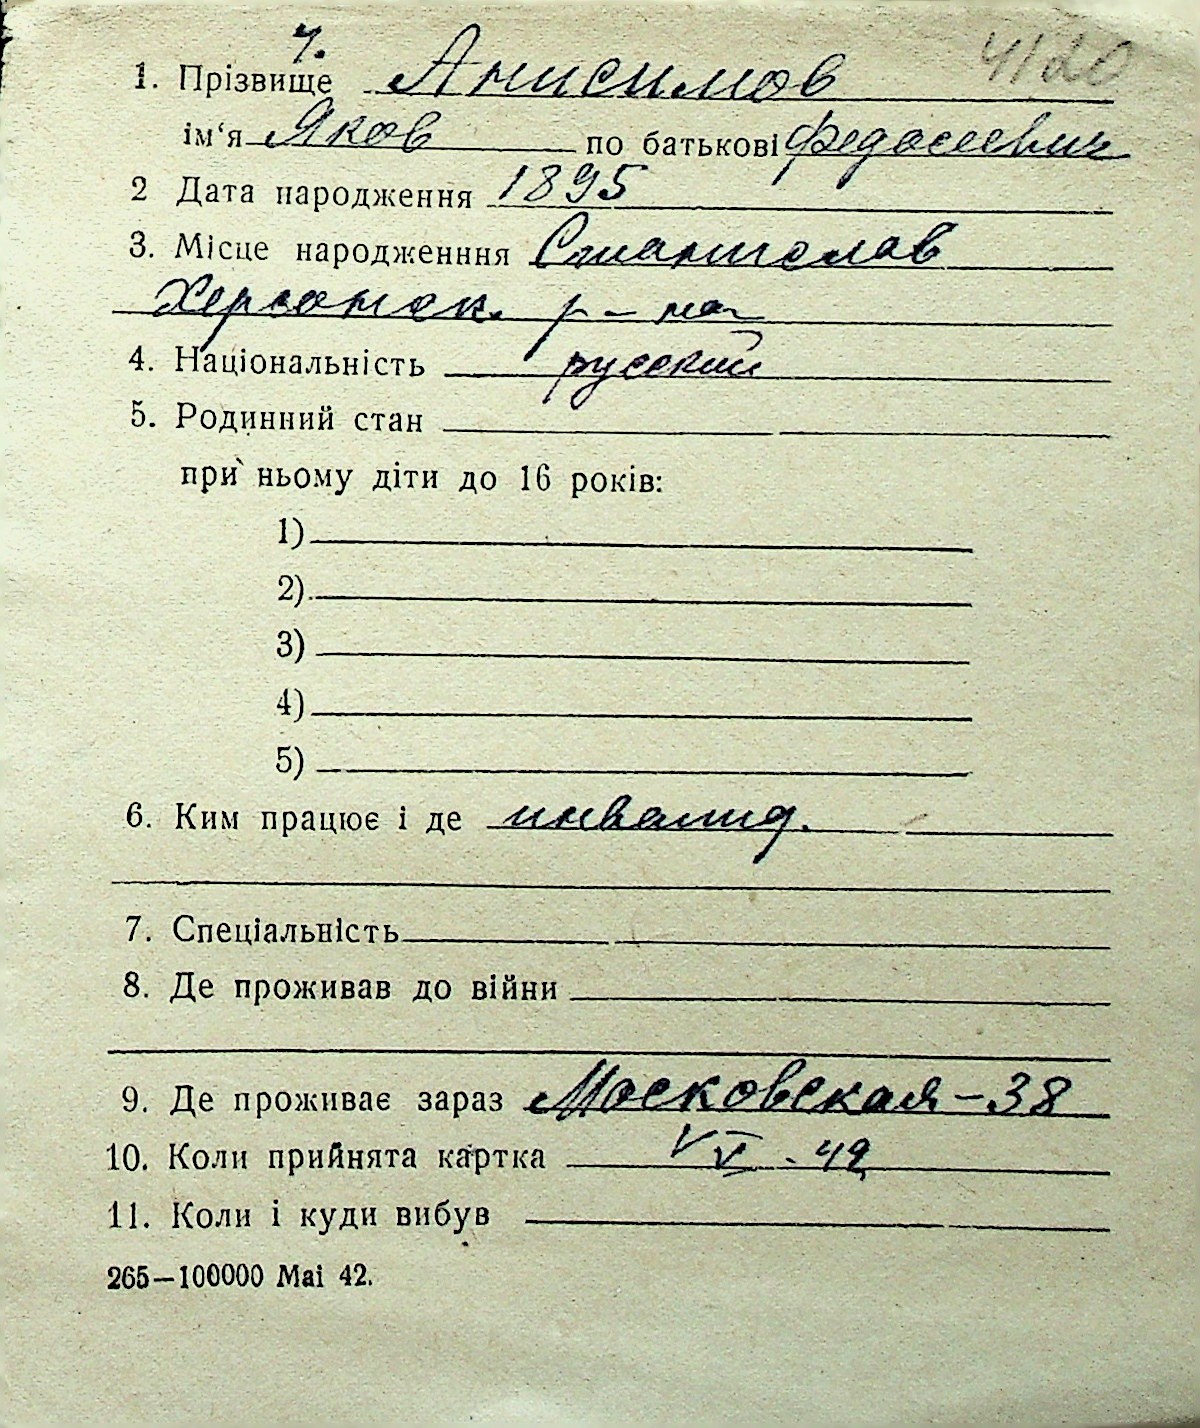 ч. 4/20
1. Прізвище Анисимов
ім‘я Яков по батькові Федосеевич
2 Дата народження 1895
3. Місце народженння Станислав
Херсонск. р-на
4. Національність русский
5. Родинний стан
при ньому діти до 16 років:
1)
2)
3)
4)
5)
6. Ким працює і де инвалид.
7. Спеціальність
8. Де проживав до війни
9. Де проживає зараз Московская-38
10. Коли прийнята картка VI - 42
11. Коли і куди вибув
265—100000 Mai 42.